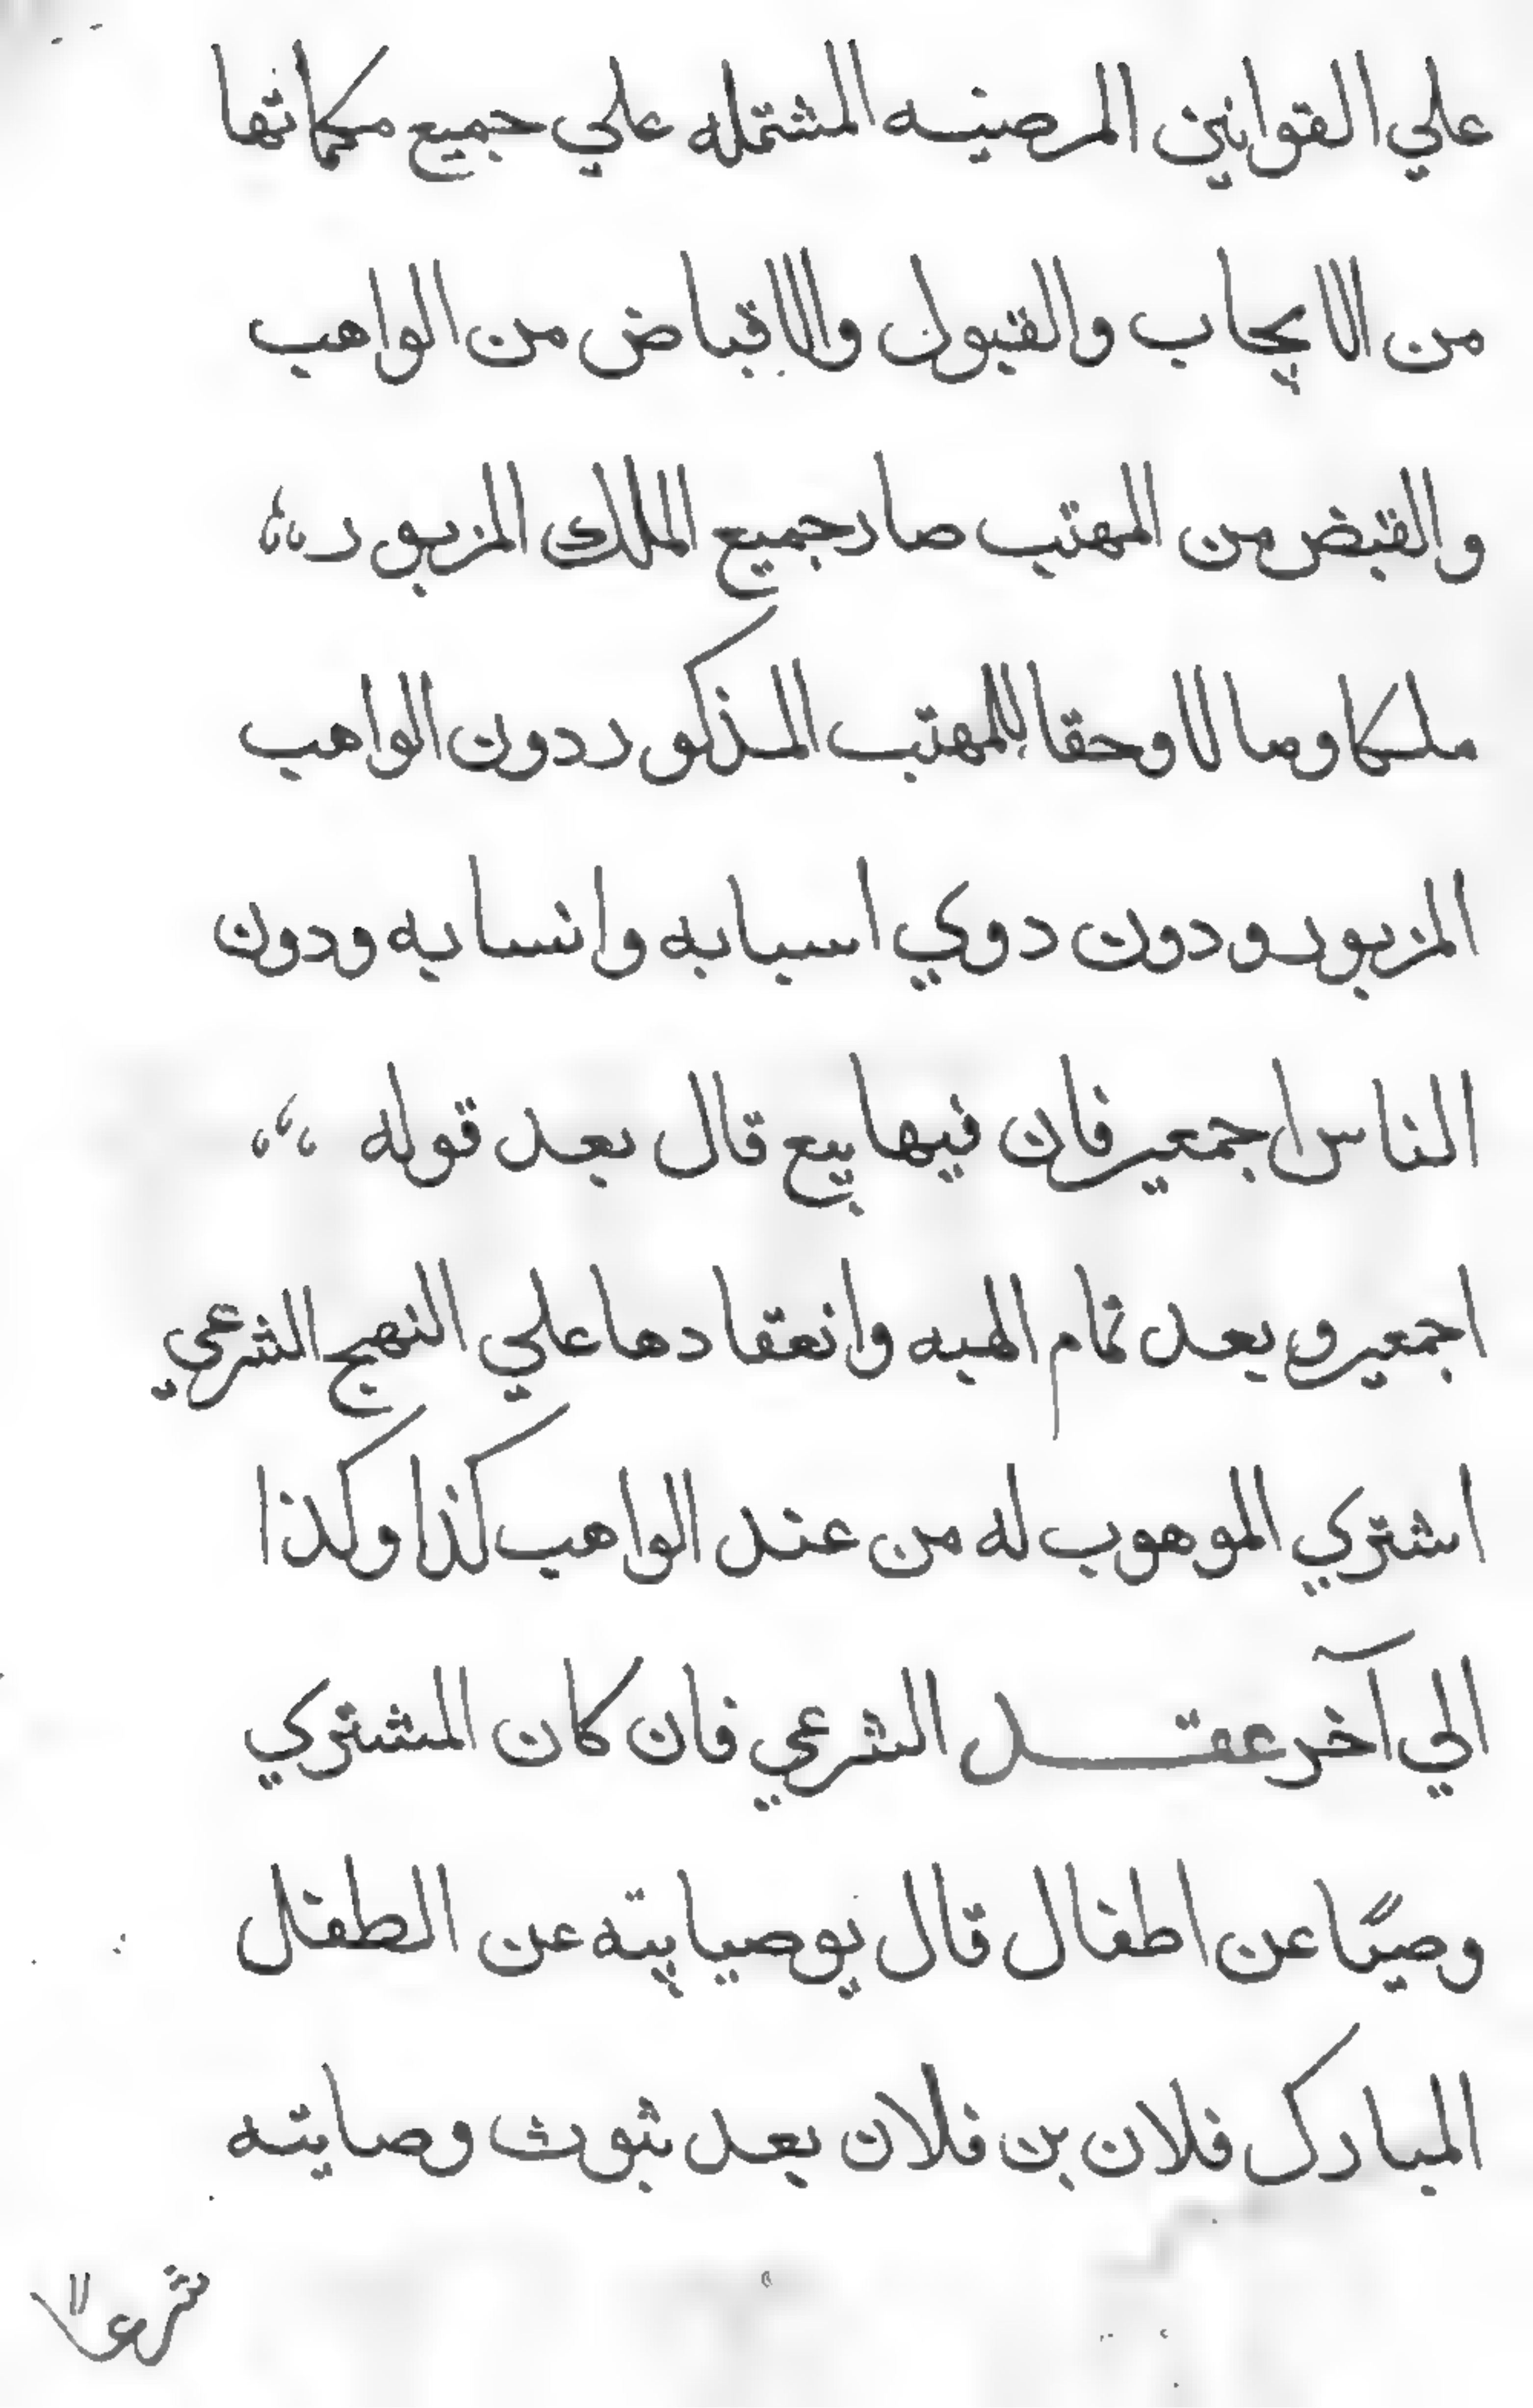 علي القوانين المرضيه المشتمله علي جميع محكماتها
من الايجاب والقبول والاقباض من الواهب
والقبض من المهتب صار جميع الملك المزبور
ملكا ومالا وحقا للمهتب المذكور دون الواهب
المزبور ودون دوي اسبابه وانسابه ودون
الناس اجمعين فان فيها بيع قال بعد قوله
اجمعين و بعد تمام الهبه وانعقادها علي النهج الشرعي
اشتري الموهوب له من عند الواهب كذا وكذا
الي آخر عقد الشرعي فان كان المشتري
وصيًا عن اطفال قال بوصيايته عن الطفل
المبارك فلان بن فلان بعد ثبوت وصايته
شرعا